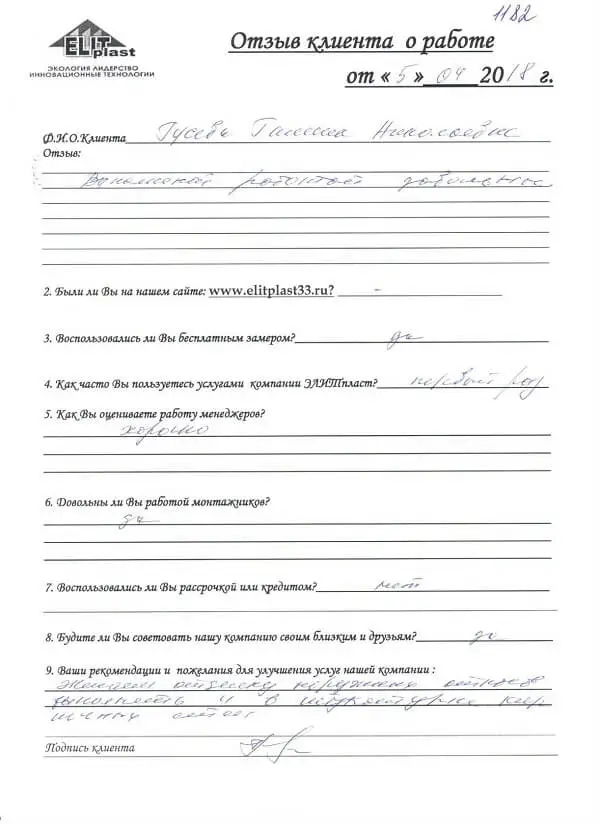 1182
ELIT plast
ЭКОЛОГИЯ ЛИДЕРСТВО
ИННОВАЦИОННЫЕ ТЕХНОЛОГИИ
Отзыв клиента о работе
от « 5 » 04 2018 г.
Ф.И.О.Клиента Гусева Галина Николаевна
Отзыв:
Выполненой работой довольна
2. Были ли Вы на нашем сайте: www.elitplast33.ru? –
3. Воспользовались ли Вы бесплатным замером? да
4. Как часто Вы пользуетесь услугами компании ЭЛИТпласт? первый раз
5. Как Вы оцениваете работу менеджеров?
хорошо
6. Довольны ли Вы работой монтажников?
да
7. Воспользовались ли Вы рассрочкой или кредитом? нет
8. Будите ли Вы советовать нашу компанию своим близким и друзьям? да
9. Ваши рекомендации и пожелания для улучшения услуг нашей компании :
Желаем отделку наружных откосов
выполнять и в штукатурке кир
пичных
Подпись клиента